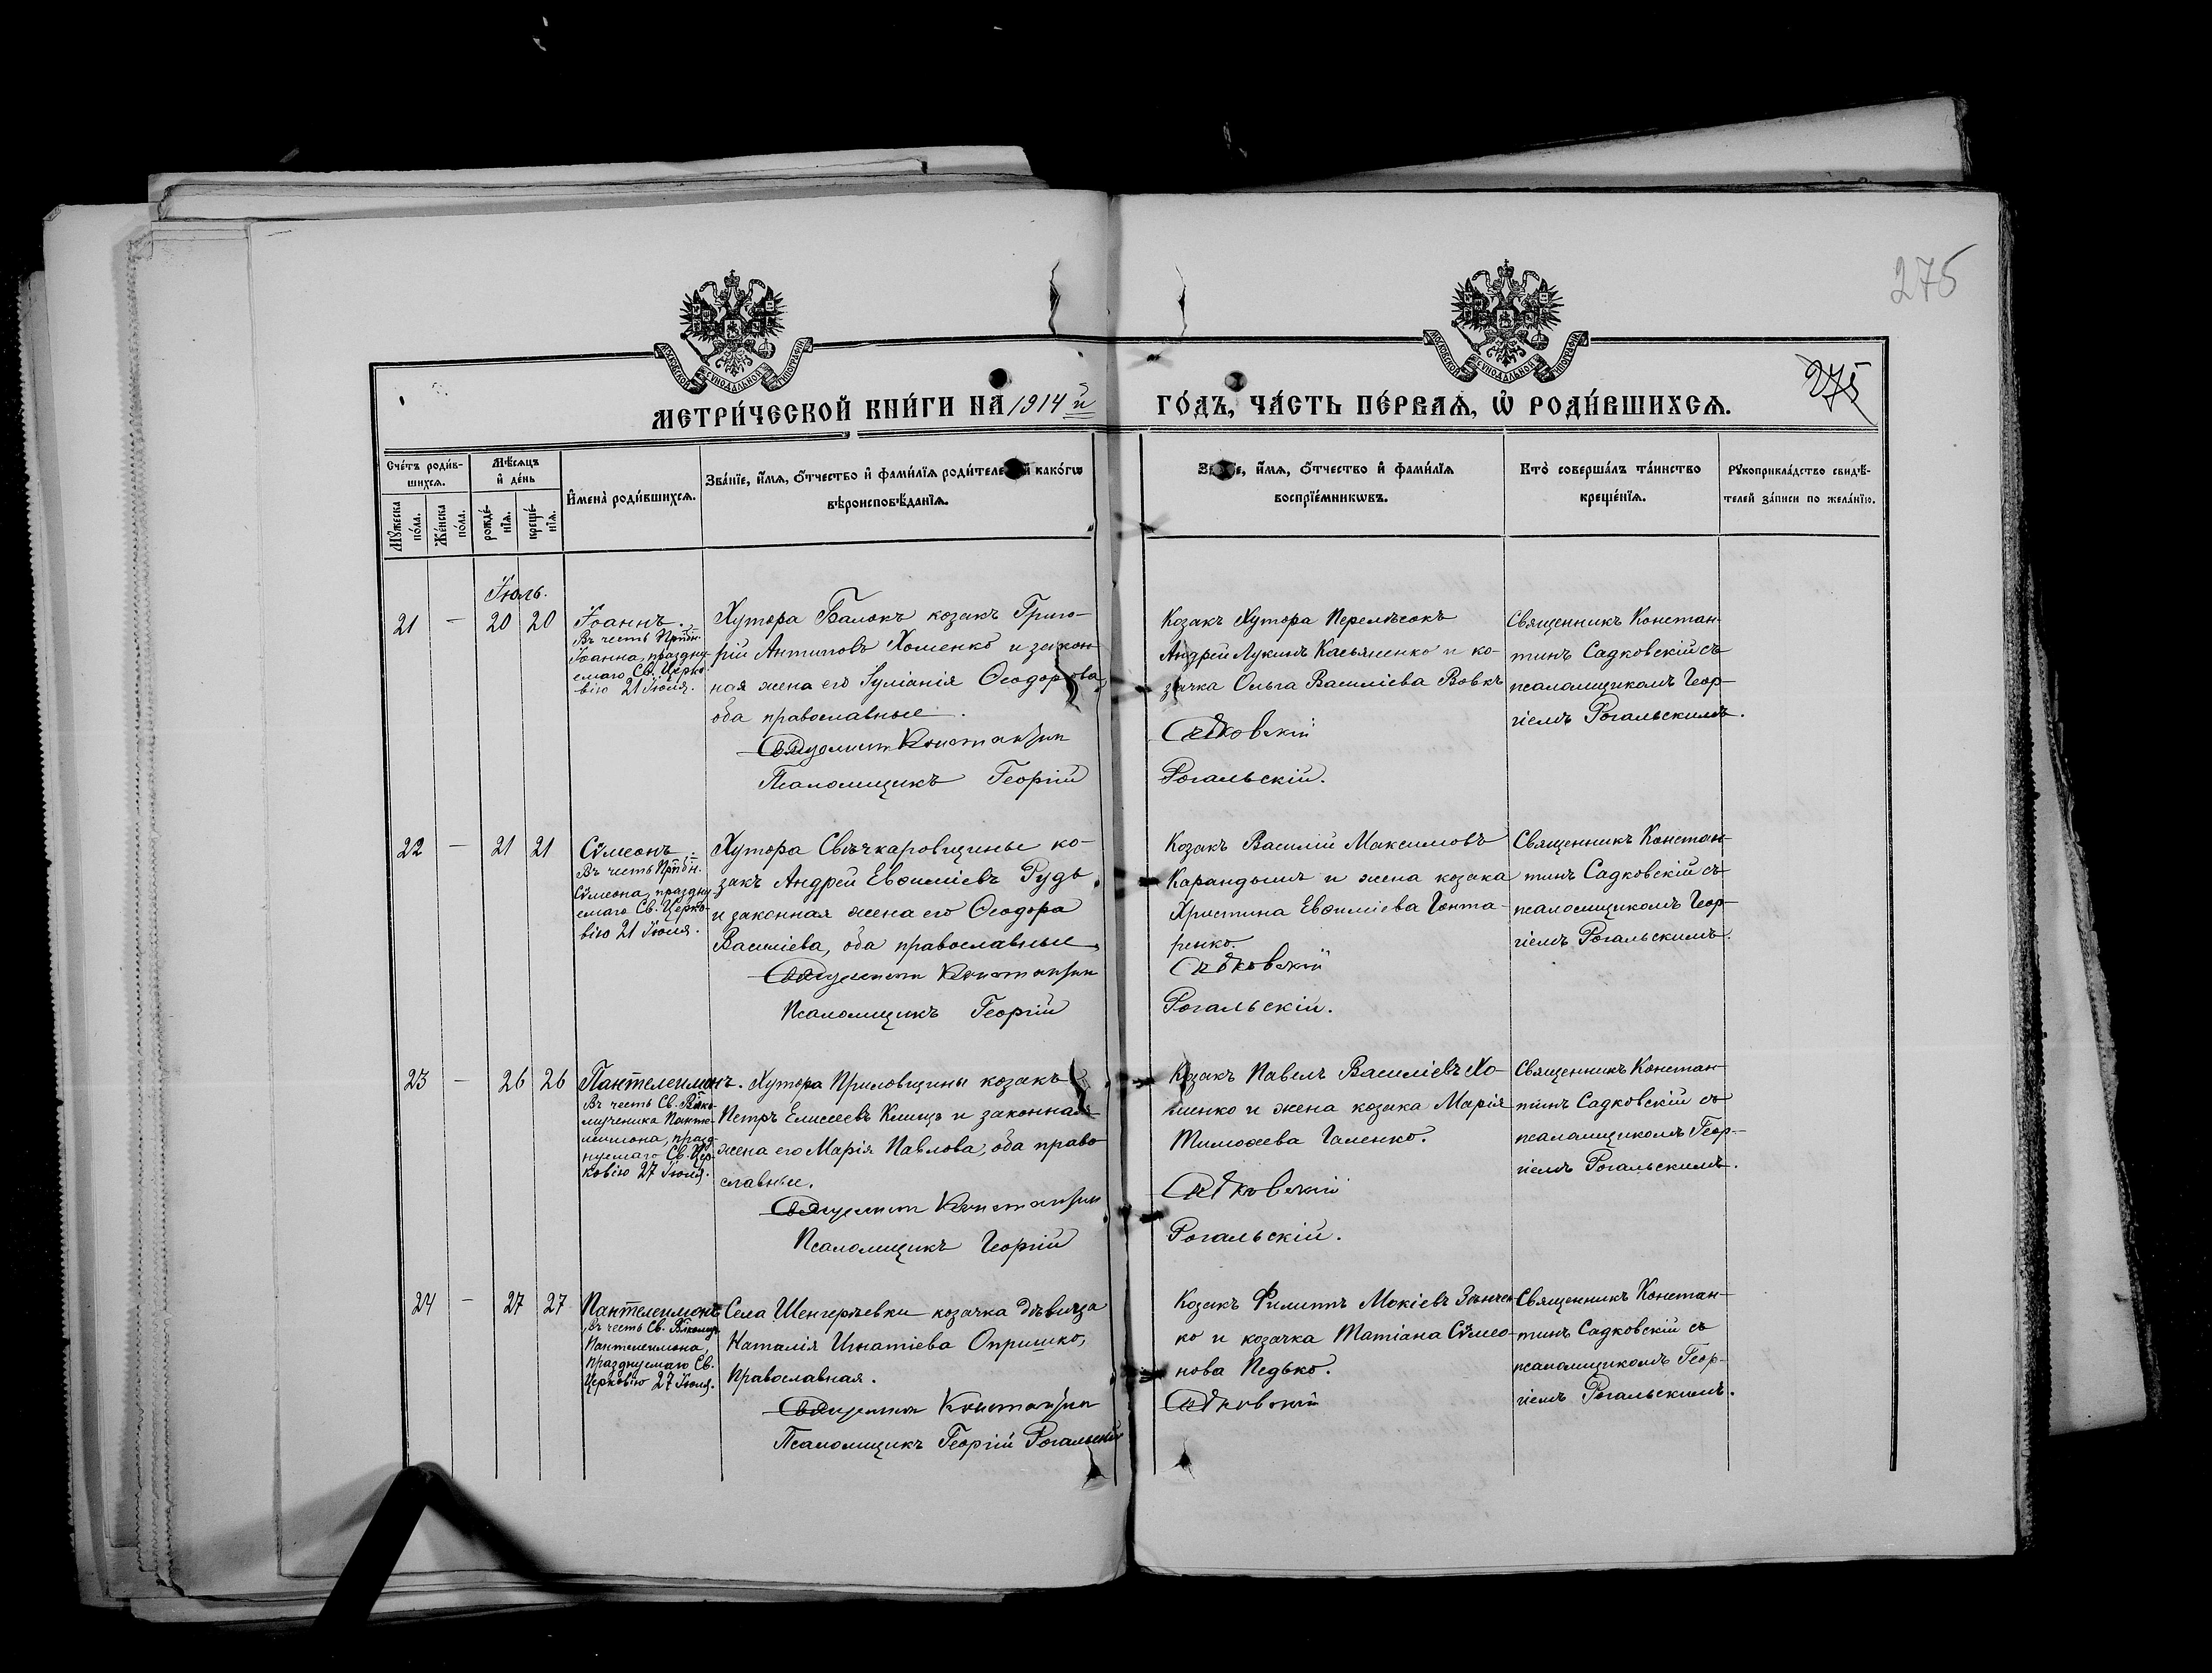 275
МОСКОВСКОЙ СУНОДАЛЬНОЙ ТИПОГРАФІИ
МОСКОВСКОЙ СУНОДАЛЬНОЙ ТИПОГРАФІИ
275
МЕТРИ́ЧЕСКОЙ КНИ́ГИ НА 1914 й
ГО́ДЪ, ЧА́СТЬ ПЕ́РВАѦ, Ѡ҆ РОДИ́ВШИХСѦ.
Сче́тъ роди́в-
шихсѧ.
Мѣ́сѧцъ
и҆ де́нь
И҆мена̀ роди́вшихсѧ.
Зва́нїе, и҆́мѧ, ѻ҆́тчество и҆ фами́лїѧ роди́теле и҆ како́гѡ
вѣроисповѣ́данїѧ.
Мꙋ́жеска
по́ла.
Же́нска
по́ла.
рожде́-
нїѧ.
креще́-
нїѧ.
и҆́мѧ, ѻ҆́тчество и҆ фами́лїѧ
воспрїе́мникѡвъ.
Кто̀ соверша́лъ та́инство
креще́нїѧ.
Рꙋкоприкла́дство свидѣ́-
телей за́писи по жела́нїю.
Іюль.
21 — 20 20
Іоаннъ.
Въ честь Прпбн.
Іоанна, праздну-
емаго Св. Церко-
вію 21 Іюля.
Хутора Балокъ козакъ Григо-
рій Антиповъ Хоменко и закон
ная жена его Іуліанія Ѳеодорова,
оба православные.
Священникъ Константин
Псаломщикъ Георгій
Козакъ Хутора Перелѣсокъ
Андрей Лукинъ Касьяненко и ко-
зачка Ольга Василіева Вовкъ
Садковскій
Рогальскій.
Священникъ Констан-
тинъ Садковскій съ
псаломщикомъ Геор-
гіемъ Рогальскимъ.
22 — 21 21
Сѵмеонъ.
Въ честь Прпбн.
Сѵмеона, праздну-
емаго Св. Церко-
вію 21 Іюля.
Хутора Свѣчкаровщины ко-
закъ Андрей Евѳиміевъ Рудь
и законная жена его Ѳеодора
Василіева, оба православные,
Священникъ Константин
Псаломщикъ Георгій
Козакъ Василій Максимовъ
Карандашъ и жена козака
Христина Евѳиміева Гонта-
ренко.
Садковскій
Рогальскій.
Священникъ Констан-
тинъ Садковскій съ
псаломщикомъ Геор-
гіемъ Рогальскимъ.
23 — 26 26
Пантелеимонъ.
Въ честь Св. Влко-
мученика Панте-
леимона, празд-
нуемаго Св. Цер-
ковію 27 Іюля.
Хутора Приловщины козакъ
Петръ Елисеевъ Клищъ и законная
жена его Марія Павлова, оба право
славные.
Священникъ Константин
Псаломщикъ Георгій
Козакъ Павелъ Василіевъ Хо-
менко и жена козака Марія
Тимоѳеева Галенко.
Садковскій
Рогальскій.
Священникъ Констан-
тинъ Садковскій съ
псаломщикомъ Геор-
гіемъ Рогальскимъ.
24 — 27 27
Пантелеимонъ
Въ честь Св. Влкомуч.
Пантелеимона,
празднуемаго Св.
Церковію 27 Іюля.
Села Шенгерѣевки козачка дѣвица
Наталія Игнатіева Опришко,
Православная.
Священникъ Константин
Псаломщикъ Георгій Рогальскій
Козакъ Филиппъ Мокіевъ Зѣнчен
ко и козачка Татіана Сѵмео-
нова Педько.
Садковскій
Священникъ Констан-
тинъ Садковскій съ
псаломщикомъ Геор-
гіемъ Рогальскимъ.